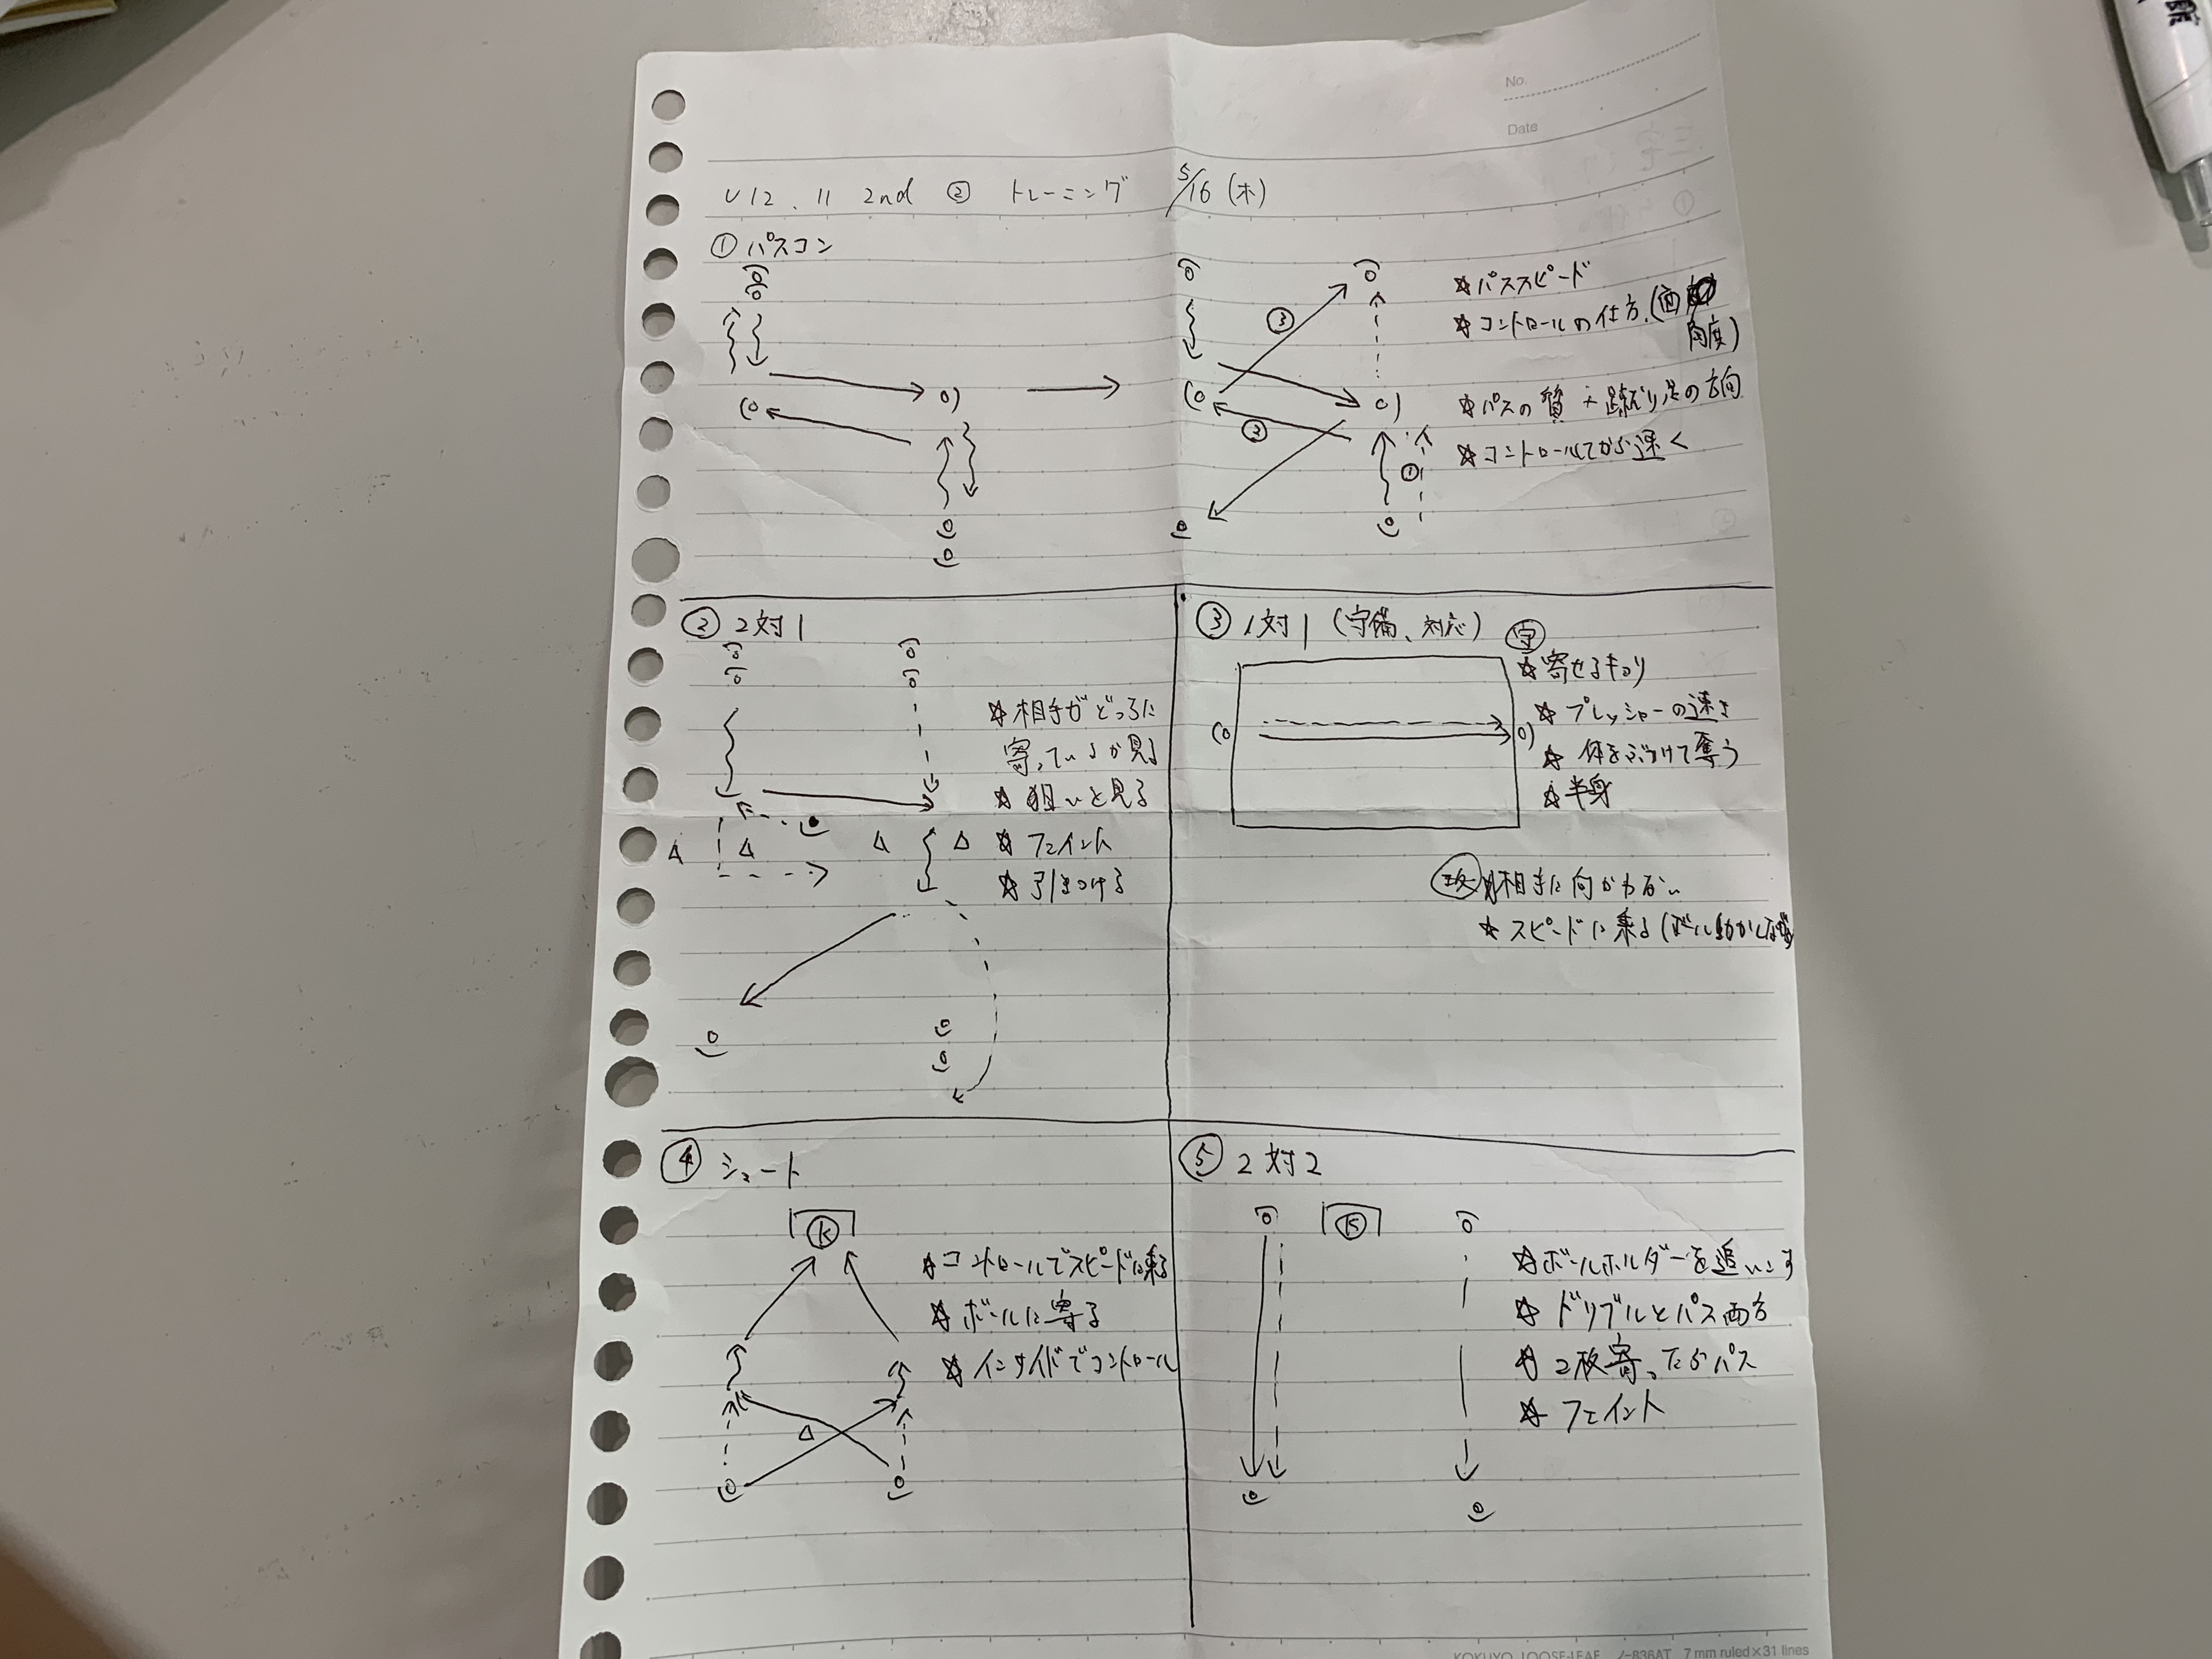 No.
Date
U12.11 2nd ② トレーニング 5/16(木)
① パスコン
③
☆パススピード
☆コントロールの仕方.(面
角度)
☆パスの質
足の方向
②
☆コントロールしてから速く
①
② 2対1
☆相手がどっちに
寄っているか見る
☆狙いと見る
☆フェイント
☆引きつける
③ 1対1(守備、対応)
守
☆寄せるキョリ
☆プレッシャーの速さ
☆体をぶつけて奪う
☆半身
攻 ☆相手に向かわない
☆スピードに乗る(ボール動かしながら
④ シュート
K
☆コントロールでスピードに乗る
☆ボールに寄る
☆インサイドでコントロール
⑤ 2対2
K
☆ボールホルダーを追いこす
☆ドリブルとパス両方
☆2枚寄ったらパス
☆フェイント
KOKUYO LOOSE-LEAF ノ-836AT 7 mm ruled×31 lines